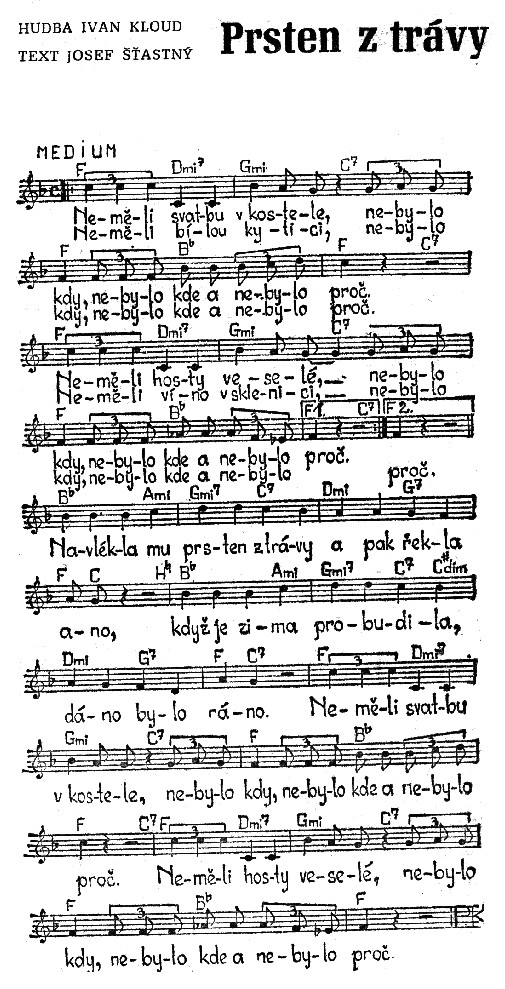 HUDBA IVAN KLOUD
TEXT JOSEF ŠŤASTNÝ
Prsten z trávy
MEDIUM
F Dmi7 Gmi C7
Ne-mě-li svat-bu v kos-te-le, ne-by-lo
Ne-mě-li bí-lou ky-ti-ci, ne-by-lo
F B♭ F C7
kdy, ne-by-lo kde a ne-by-lo proč.
kdy, ne-by-lo kde a ne-by-lo proč.
F Dmi7 Gmi C7
Ne-mě-li hos-ty ve-se-lé, ne-by-lo
Ne-mě-li ví-no v skle-ni-ci, ne-by-lo
F B♭ F1. C7 F2.
kdy, ne-by-lo kde a ne-by-lo proč.
kdy, ne-by-lo kde a ne-by-lo proč.
B♭ Ami Gmi7 C7 Dmi G7
Na-vlék-la mu prs-ten z trá-vy a pak řek-la
F C H♮ B♭ Ami Gmi7 C7 C#dim
a-no, když je zi-ma pro-bu-di-la,
Dmi G7 F C7 F Dmi7
dá-no by-lo rá-no. Ne-mě-li svat-bu
Gmi C7 F B♭
v kos-te-le, ne-by-lo kdy, ne-by-lo kde a ne-by-lo
F C7 F Dmi7 Gmi C7
proč. Ne-mě-li hos-ty ve-se-lé, ne-by-lo
F B♭ F
kdy, ne-by-lo kde a ne-by-lo proč.